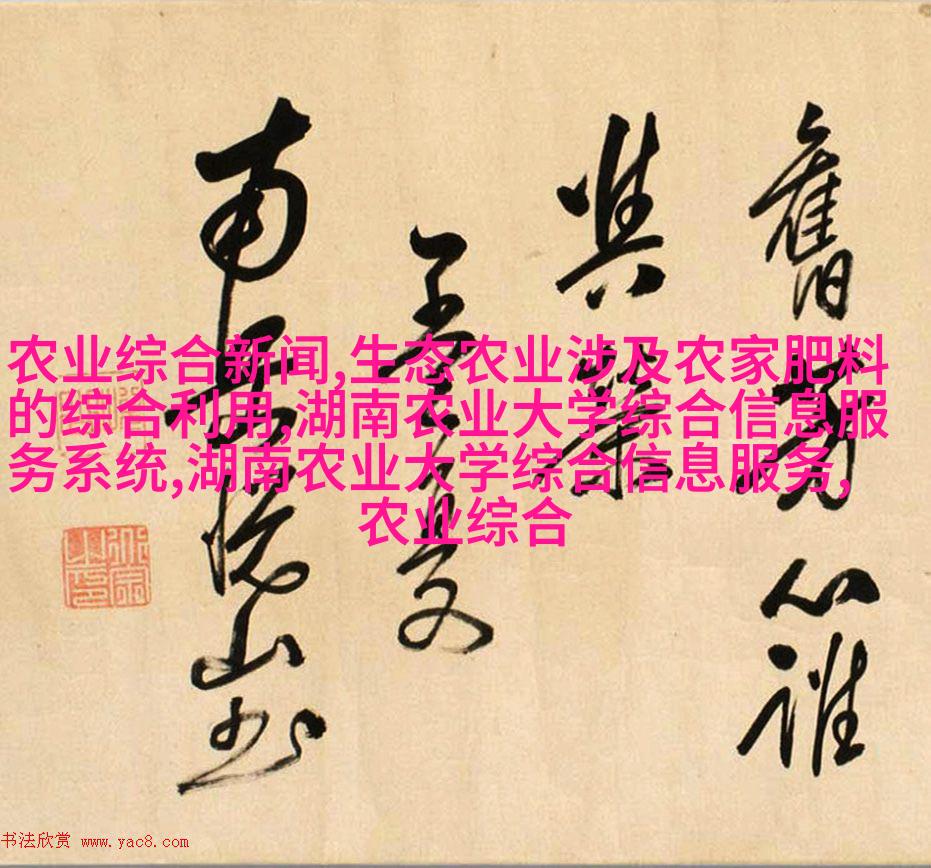 农业综合新闻,生态农业涉及农家肥料
的综合利用,湖南农业大学综合信息服
务系统,湖南农业大学综合信息服务,
农业综合
舊心誰
與
南岳悦山书
书法欣赏 www.yac8.com